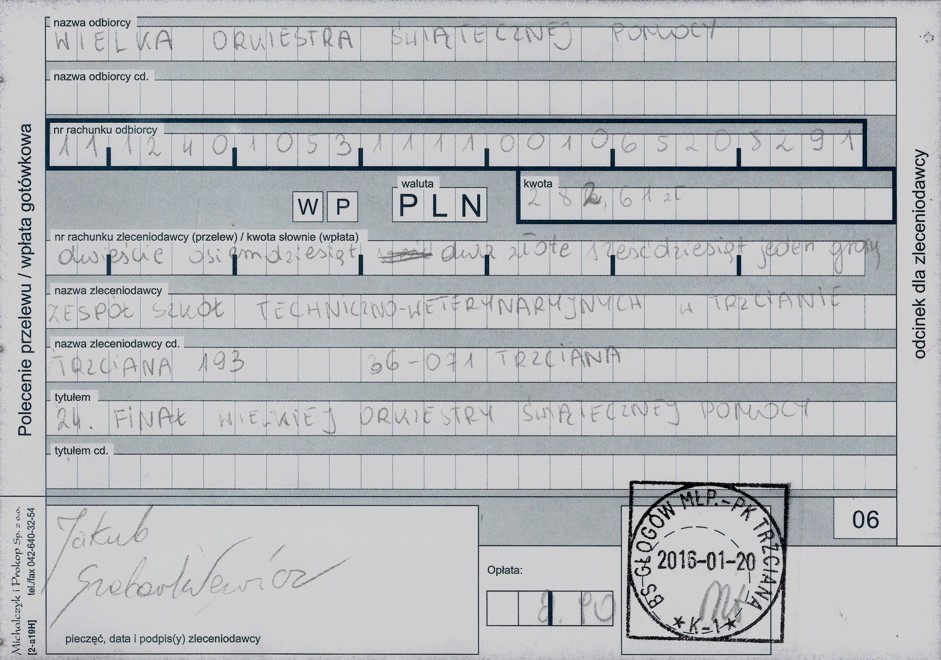 nazwa odbiorcy
WIELKA ORKIESTRA ŚWIĄTECZNEJ POMOCY
nazwa odbiorcy cd.
nr rachunku odbiorcy
11 1240 1053 1111 0010 6520 8291
W P
waluta
PLN
kwota
282,61 zł
nr rachunku zleceniodawcy (przelew) / kwota słownie (wpłata)
dwieście osiemdziesiąt dwa złote sześćdziesiąt jeden groszy
nazwa zleceniodawcy
ZESPÓŁ SZKÓŁ TECHNICZNO-WETERYNARYJNYCH W TRZCIANIE
nazwa zleceniodawcy cd.
TRZCIANA 193 36-071 TRZCIANA
tytułem
24. FINAŁ WIELKIEJ ORKIESTRY ŚWIĄTECZNEJ POMOCY
tytułem cd.
Jakub
pieczęć, data i podpis(y) zleceniodawcy
Opłata:
BS GŁOGÓW MŁP.-PK TRZCIANA
2016-01-20
*K-1*
06
Polecenie przelewu / wpłata gotówkowa
odcinek dla zleceniodawcy
Michalczyk i Prokop Sp. z o.o.
tel./fax 042-640-32-54
[2-a19H]